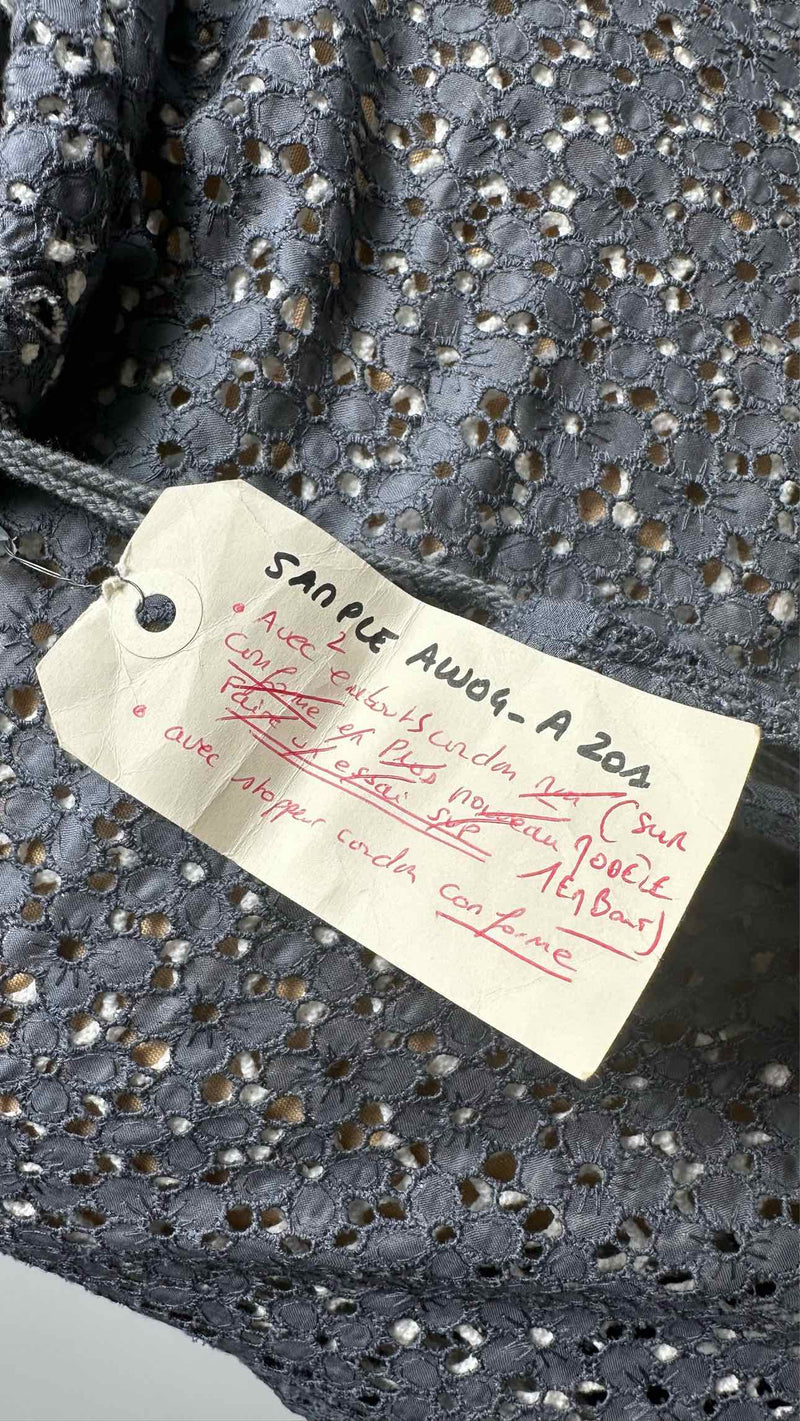 SAMPLE AW04_A201
• Avec 2 embouts cordon non (sur
conforme en Plus nouveau MODÈLE
Faire un essai sur 1 EMBOUT)
• avec stoppeur cordon conforme